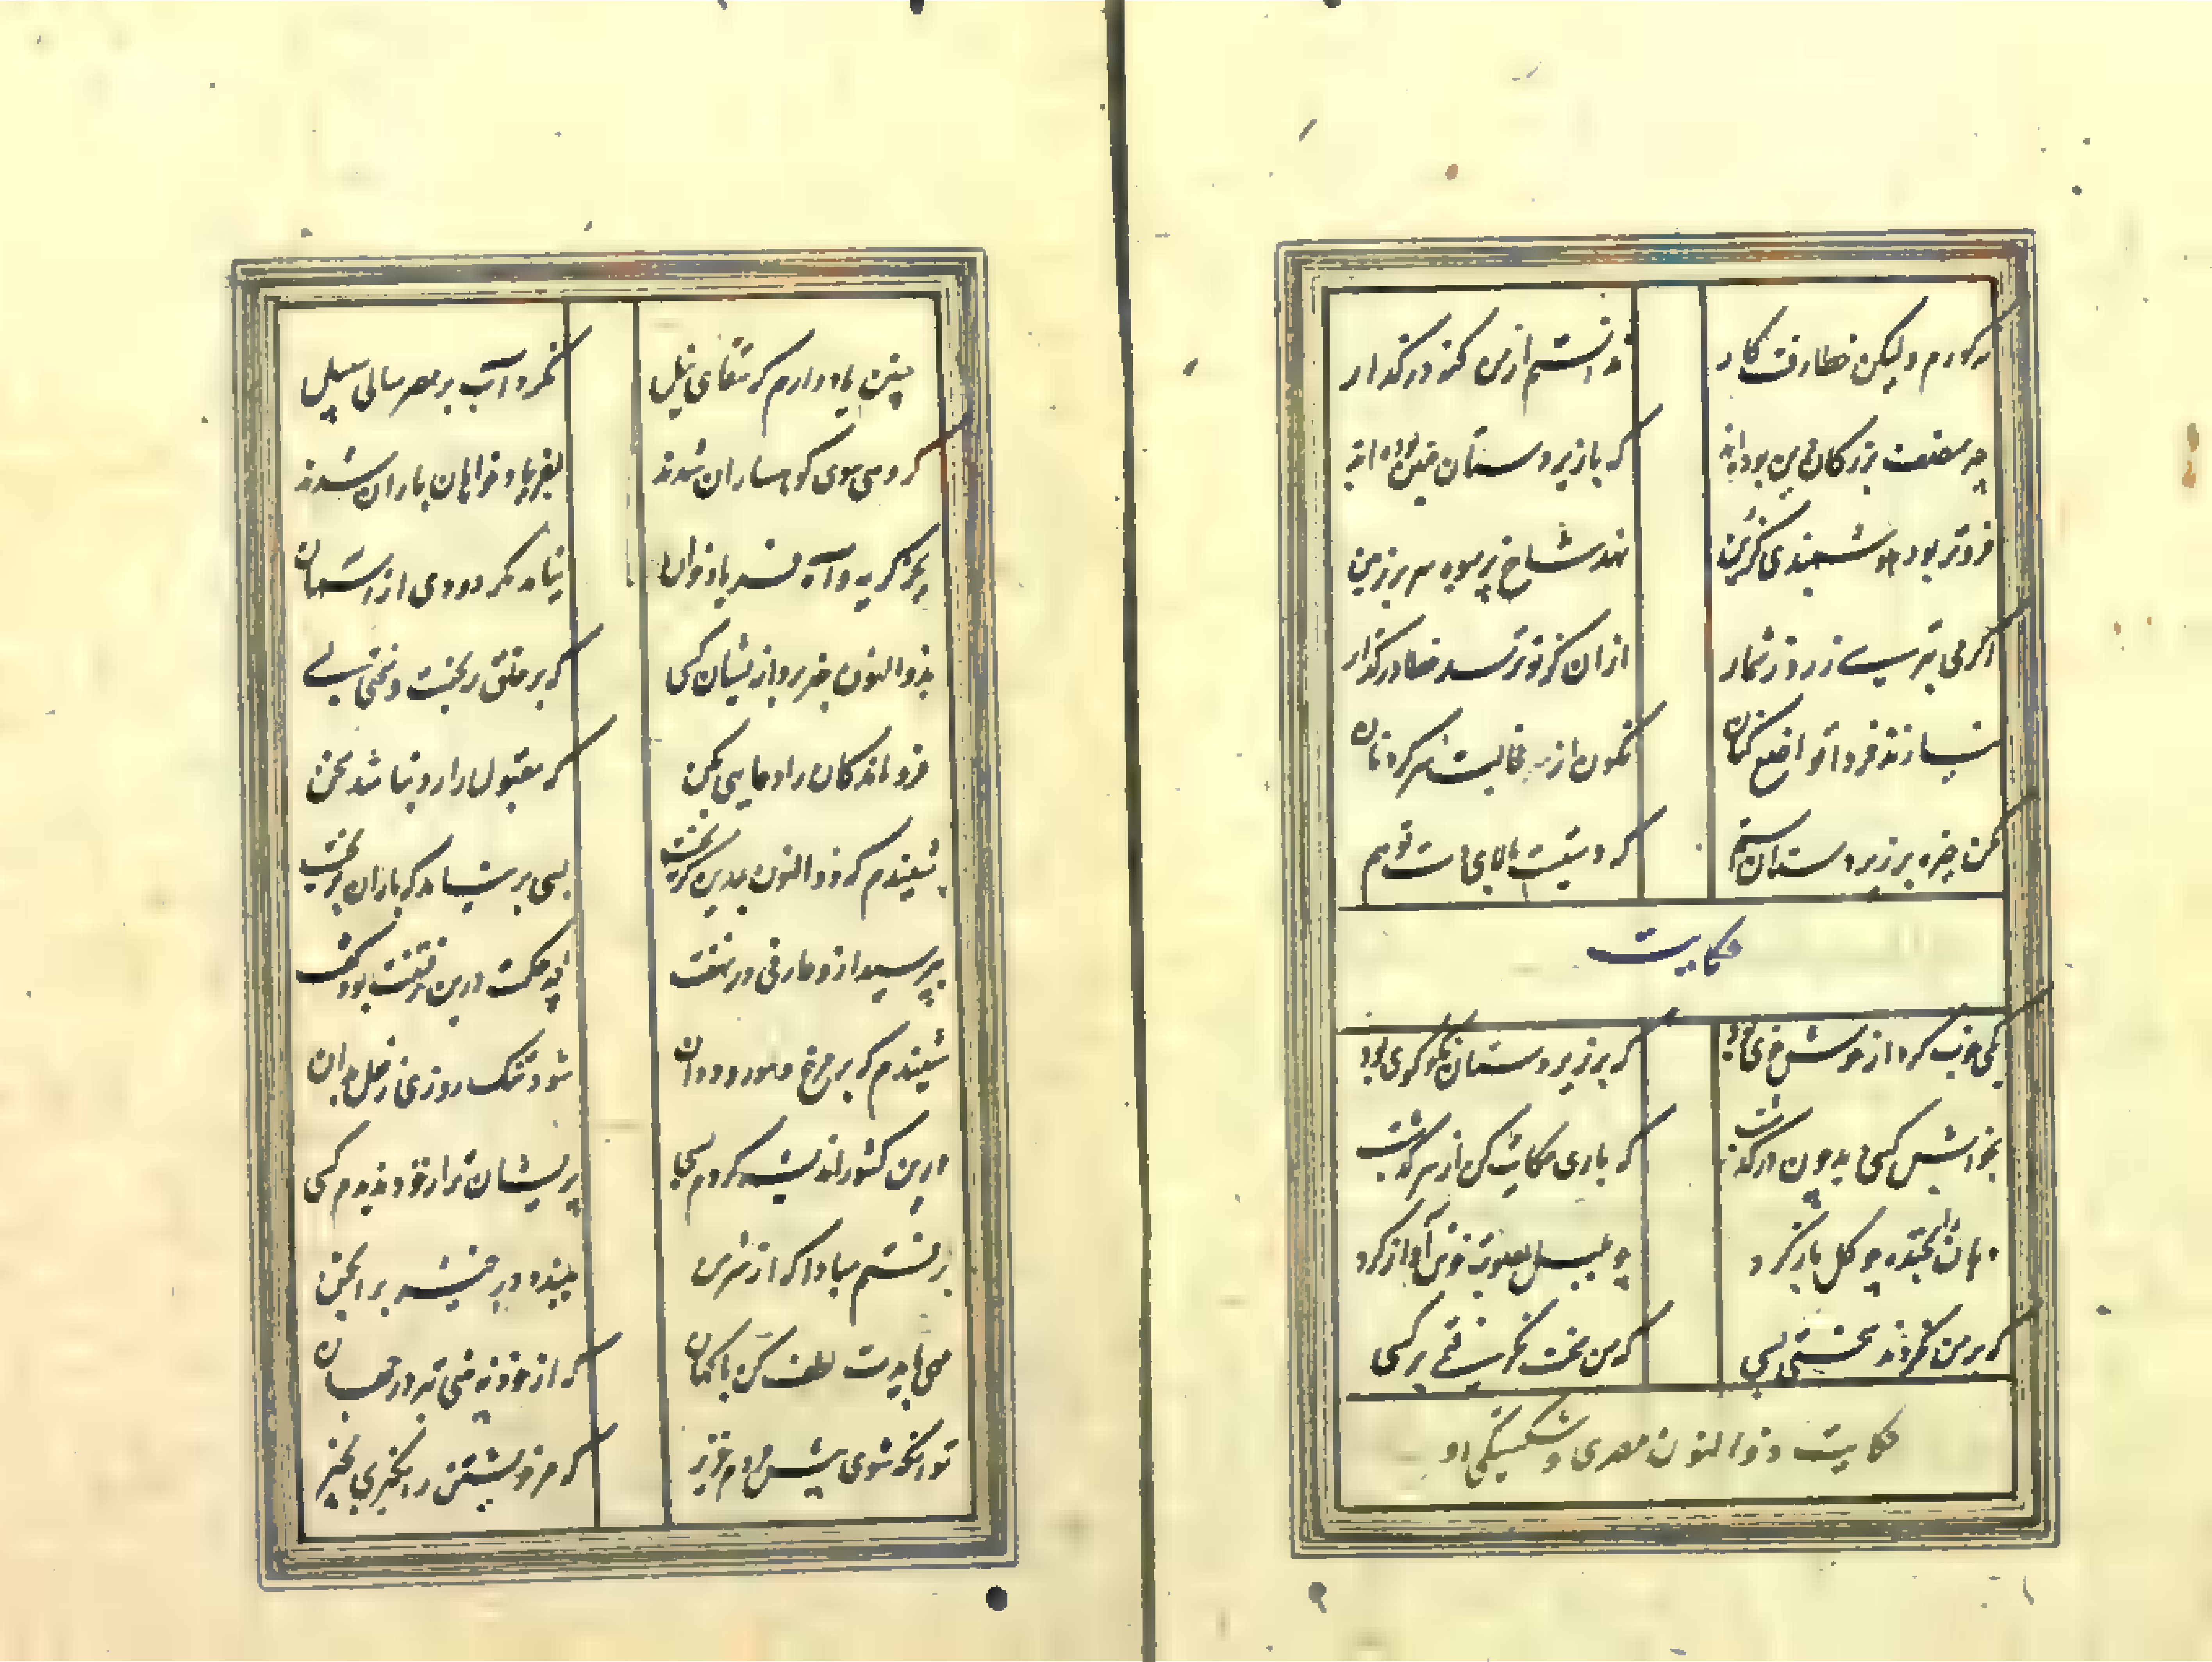 نه کردم ولیکن خطا رفت کار ندانستم ازمن کنه درکذار
چه منصف بزرکان دین بوده‌اند که با زیردستان چنین بوده‌اند
فروتر بود هوشمندی کزین نهد شاخ پر میوه سر بر زمین
اکر می بترسی ز روز شمار ازان کز تو ترسد خطا درکذار
بنازند فردا تواضع کنان نکون از خجالت سر کردنان
مکن خیره بر زیردستان ستم که دستیست بالای دست تو هم
حکایت
یکی خوب کردار خوش خوی بود که بر زیردستان نکوکوی بود
بخوابش کسی دید چون درکذشت که باری حکایت کن از سرکذشت
دهان بخنده چو کل باز کرد چو بلبل بصوت خوش آواز کرد
که بر من نکردند سختی بسی که من سخت نکرفتمی بر کسی
حکایت ذوالنون مصری و شکستکی او
چنین یاد دارم که سقای نیل نکرد آب بر مصر سالی سبیل
کروهی سوی کوهساران شدند بفریاد خواهان باران شدند
بجز کریه و آه فریاد خوان نیامد مکر دودی از آسمان
بذوالنون خبر برد ازیشان کسی که بر خلق رنجست و سختی بسی
فروماندکان را دعایی بکن که مقبول را رد نباشد سخن
شنیدم که ذوالنون بمدین کریخت بسی بر نیامد که باران بریخت
بپرسید ازو عارفی در نهفت چه حکمت درین رفتنت بود کفت
شنیدم که بر مرغ و مور و ددان شود تنک روزی ز فعل بدان
درین کشور اندیشه کردم بسی پریشان تر از خود ندیدم کسی
برفتم مبادا که از شر من ببندد در خیر بر انجمن
بهی بایدت لطف کن با کهان که از خود نه منی بتر در جهان
تو آنکه شوی پیش مردم عزیز که مر خویشتن را نکیری بچیز